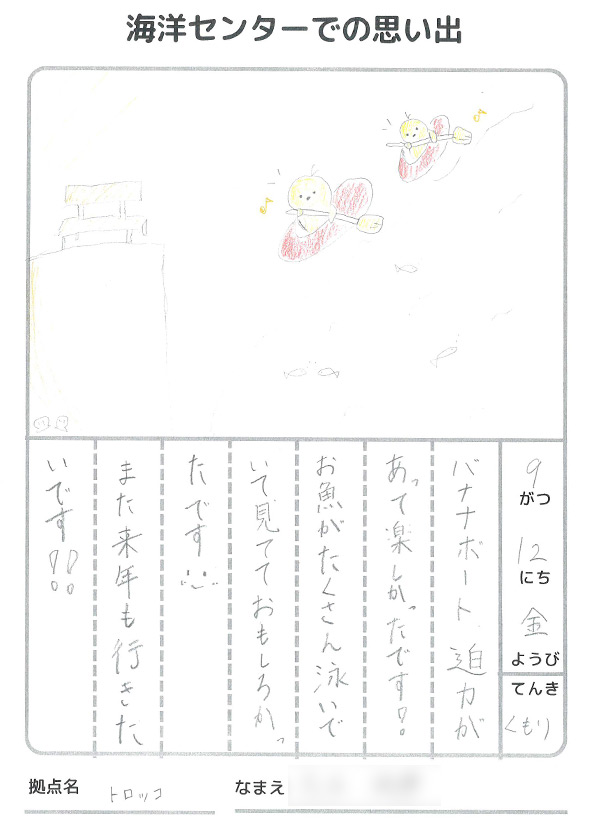 海洋センターでの思い出
9がつ
12にち
金ようび
てんき
くもり
バナナボート、迫力が
あって楽しかったです!。
お魚がたくさん泳いで
いて見てておもしろかっ
たです
また来年も行きた
いです!!
拠点名 トロッコ
なまえ